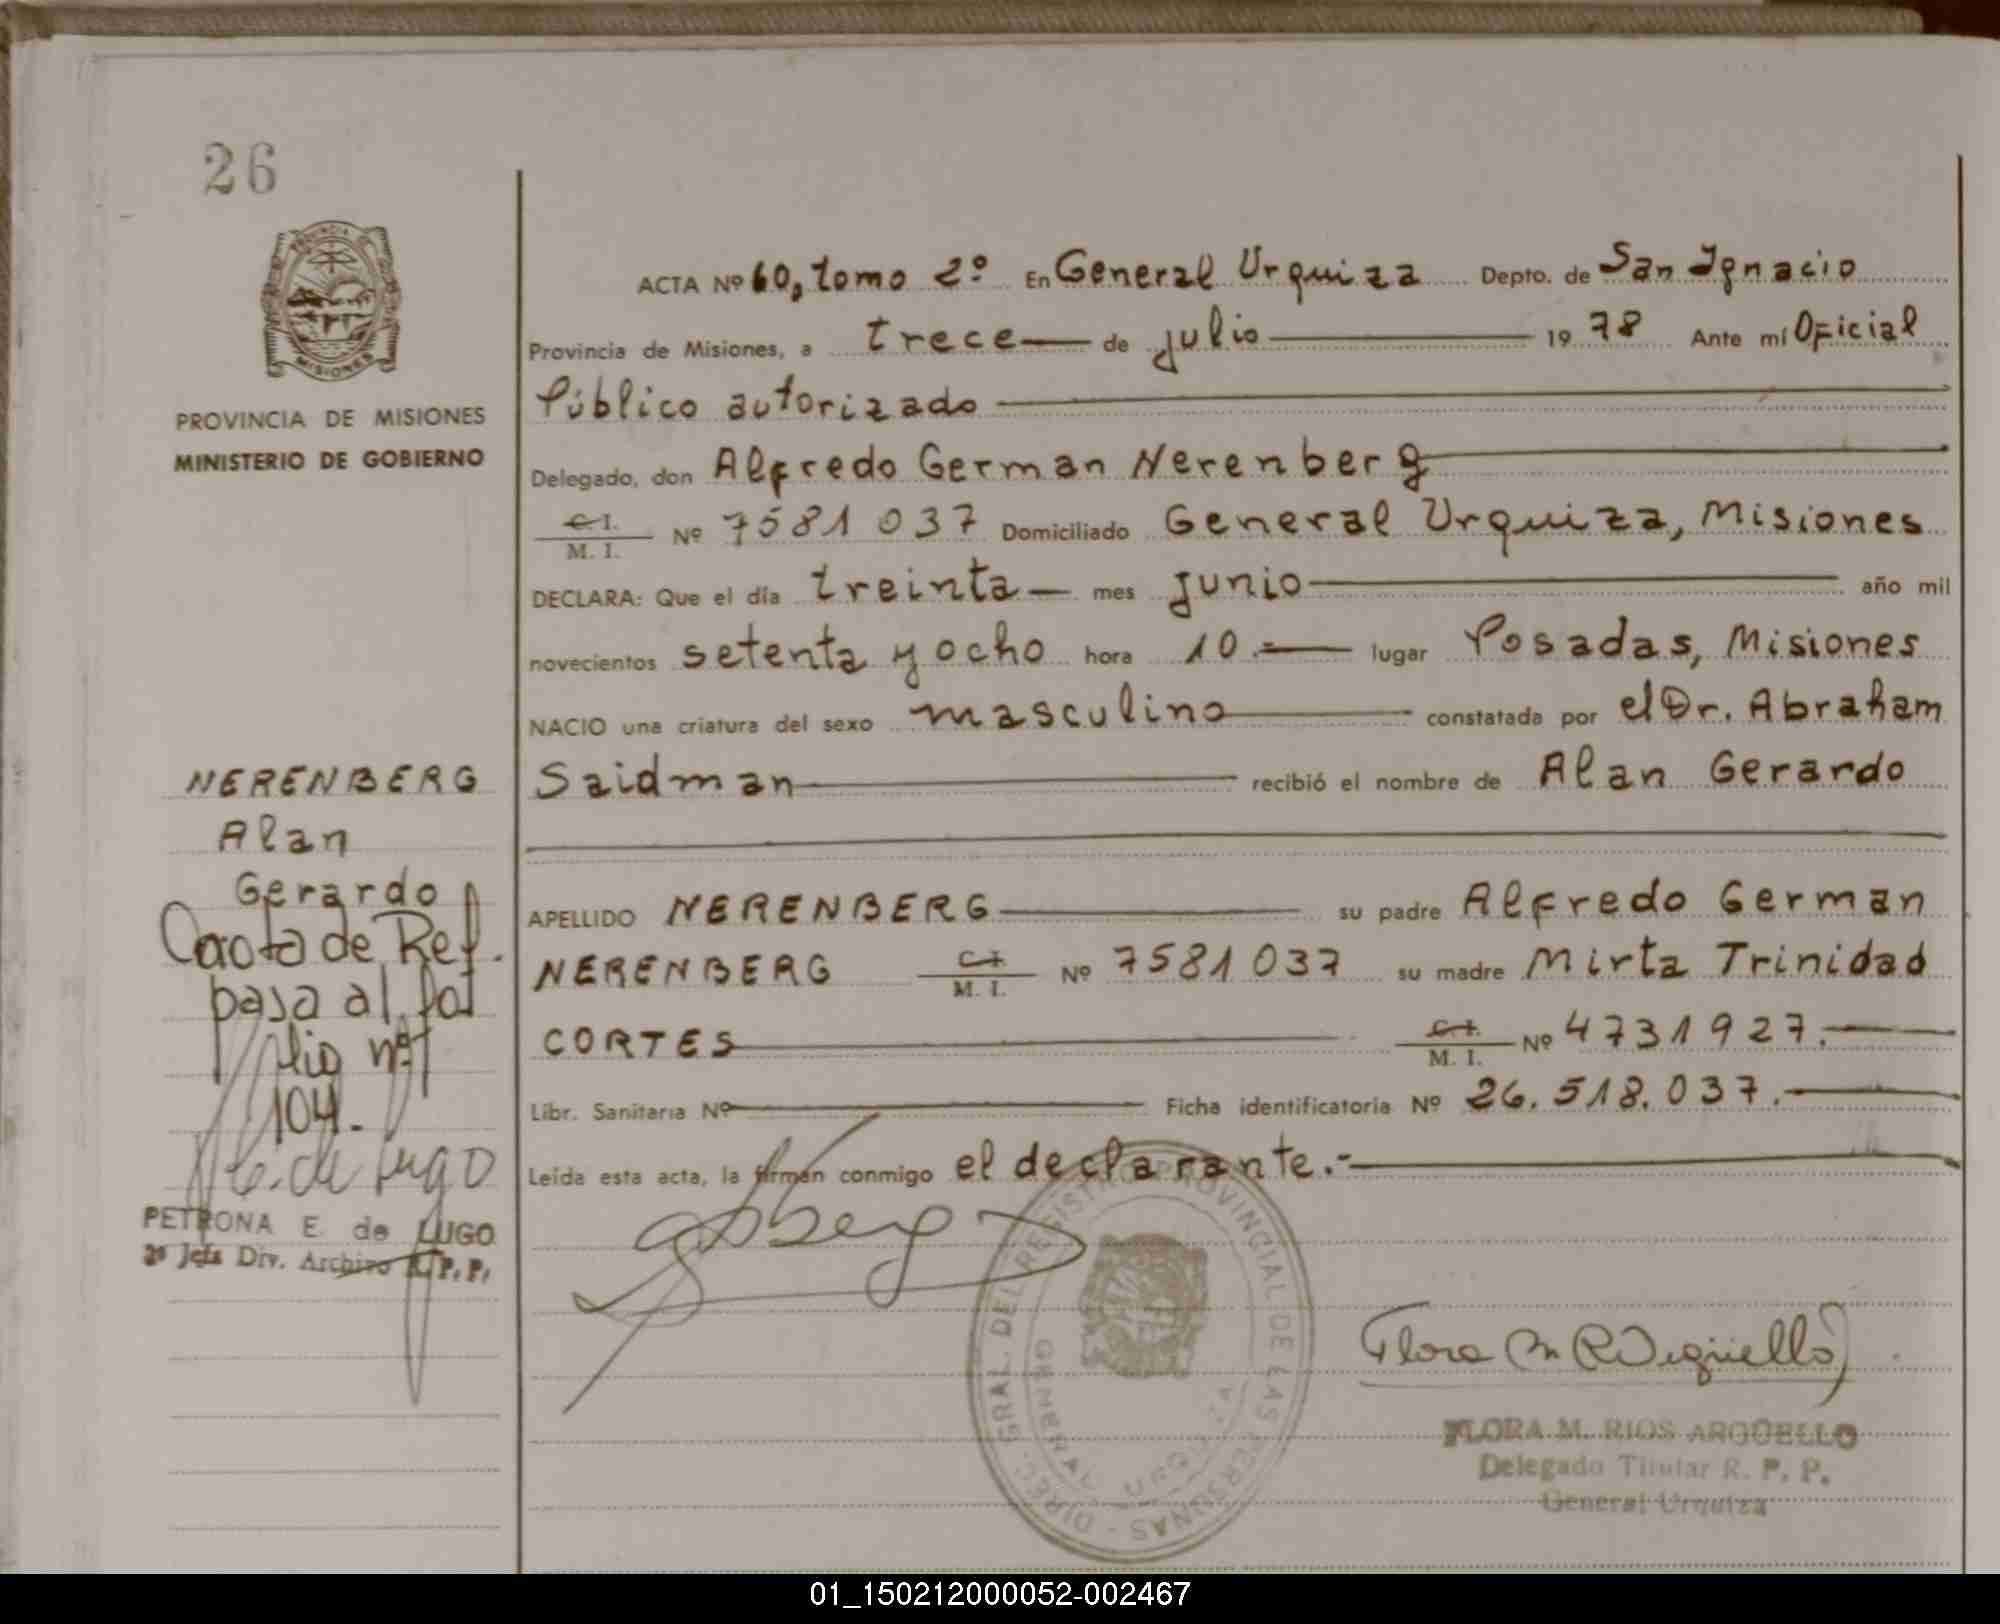 26
PROVINCIA DE MISIONES
MINISTERIO DE GOBIERNO
NERENBERG
Alan
Gerardo
Carta de Ref.
pasa al fol
lio nº
104.-
PETRONA E. de LUGO
2º Jefe Div. Archivo R. P. P.
ACTA Nº 60, tomo 2º En General Urquiza Depto. de San Ignacio
Provincia de Misiones, a trece de julio 19 78 Ante mí Oficial
Público autorizado
Delegado, don Alfredo German Nerenberg
C. I. / M. I. Nº 7581037 Domiciliado General Urquiza, Misiones
DECLARA: Que el día treinta mes junio año mil
novecientos setenta y ocho hora 10.- lugar Posadas, Misiones
NACIO una criatura del sexo masculino constatada por el Dr. Abraham
Saidman recibió el nombre de Alan Gerardo
APELLIDO NERENBERG su padre Alfredo German
NERENBERG C. I. / M. I. Nº 7581037 su madre Mirta Trinidad
CORTES C. I. / M. I. Nº 4731927.
Libr. Sanitaria Nº Ficha identificatoria Nº 26.518.037.
Leída esta acta, la firman conmigo el declarante.-
DIREC. GRAL. DEL REGISTRO PROVINCIAL DE LAS PERSONAS
GENERAL URQUIZA
Flora M R Argüello
FLORA M. RIOS ARGÜELLO
Delegado Titular R. P. P.
General Urquiza
01_150212000052-002467